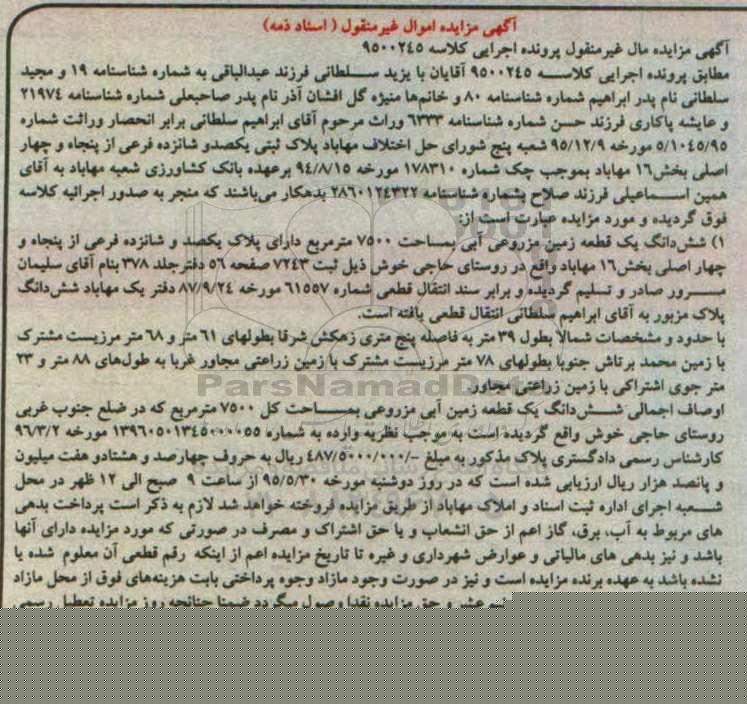 آگهی مزایده اموال غیرمنقول ( اسناد ذمه)
آگهی مزایده مال غیرمنقول پرونده اجرایی کلاسه ۹۵۰۰۲۴۵
مطابق پرونده اجرایی کلاسه ۹۵۰۰۲۴۵ آقایان با یزید سلطانی فرزند عبدالباقی به شماره شناسنامه ۱۹ و مجید
سلطانی نام پدر ابراهیم شماره شناسنامه ۸۰ و خانم‌ها منیژه گل افشان آذر نام پدر صاحبعلی شماره شناسنامه ۲۱۹۷۴
و عایشه پاکاری فرزند حسن شماره شناسنامه ۶۳۳۳ وراث مرحوم آقای ابراهیم سلطانی برابر انحصار وراثت شماره
۵/۱۰۴۵/۹۵ مورخه ۹۵/۱۲/۹ شعبه پنج شورای حل اختلاف مهاباد پلاک ثبتی یکصدو شانزده فرعی از پنجاه و چهار
اصلی بخش۱۶ مهاباد بموجب چک شماره ۱۷۸۳۱۰ مورخه ۹۴/۸/۱۵ برعهده بانک کشاورزی شعبه مهاباد به آقای
همین اسماعیلی فرزند صلاح بشماره شناسنامه ۲۸۶۰۱۲۴۳۲۲ بدهکار می‌باشند که منجر به صدور اجرائیه کلاسه
فوق گردیده و مورد مزایده عبارت است از:
۱) شش‌دانگ یک قطعه زمین مزروعی آبی بمساحت ۷۵۰۰ مترمربع دارای پلاک یکصد و شانزده فرعی از پنجاه و
چهار اصلی بخش۱۶ مهاباد واقع در روستای حاجی خوش ذیل ثبت ۷۲۴۳ صفحه ۵۶ دفترجلد ۳۷۸ بنام آقای سلیمان
سرور صادر و تسلیم گردیده و برابر سند انتقال قطعی شماره ۶۱۵۵۷ مورخه ۸۷/۹/۲۴ دفتر یک مهاباد شش‌دانگ
پلاک مزبور به آقای ابراهیم سلطانی انتقال قطعی یافته است.
با حدود و مشخصات شمالا بطول ۳۹ متر به فاصله پنج متری زهکش شرقا بطولهای ۶۱ متر و ۶۸ متر مرزیست مشترک
با زمین محمد برتاش جنوبا بطولهای ۷۸ متر مرزیست مشترک با زمین زراعتی مجاور غربا به طول‌های ۸۸ متر و ۲۳
متر جوی اشتراکی با زمین زراعتی مجاور.
اوصاف اجمالی شش‌دانگ یک قطعه زمین آبی مزروعی بمساحت کل ۷۵۰۰ مترمربع که در ضلع جنوب غربی
روستای حاجی خوش واقع گردیده است به موجب نظریه وارده به شماره ۱۳۹۶۰۵۰۱۳۴۵۰۰۰۰۵۵ مورخه ۹۶/۳/۲
کارشناس رسمی دادگستری پلاک مذکور به مبلغ -/۴۸۷/۵۰۰۰/۰۰۰ ریال به حروف چهارصد و هشتادو هفت میلیون
و پانصد هزار ریال ارزیابی شده است که در روز دوشنبه مورخه ۹۵/۵/۳۰ از ساعت ۹ صبح الی ۱۲ ظهر در محل
شعبه اجرای اداره ثبت اسناد و املاک مهاباد از طریق مزایده فروخته خواهد شد لازم به ذکر است پرداخت بدهی
های مربوط به آب، برق، گاز اعم از حق انشعاب و یا حق اشتراک و مصرف در صورتی که مورد مزایده دارای آنها
باشد و نیز بدهی های مالیاتی و عوارض شهرداری و غیره تا تاریخ مزایده اعم از اینکه رقم قطعی آن معلوم شده یا
نشده باشد به عهده برنده مزایده است و نیز در صورت وجود مازاد وجوه پرداختی بابت هزینه‌های فوق از محل مازاد
نیم عشر و حق مزایده نقدا وصول میگردد ضمنا چنانچه روز مزایده تعطیل رسمی
ParsNamadData